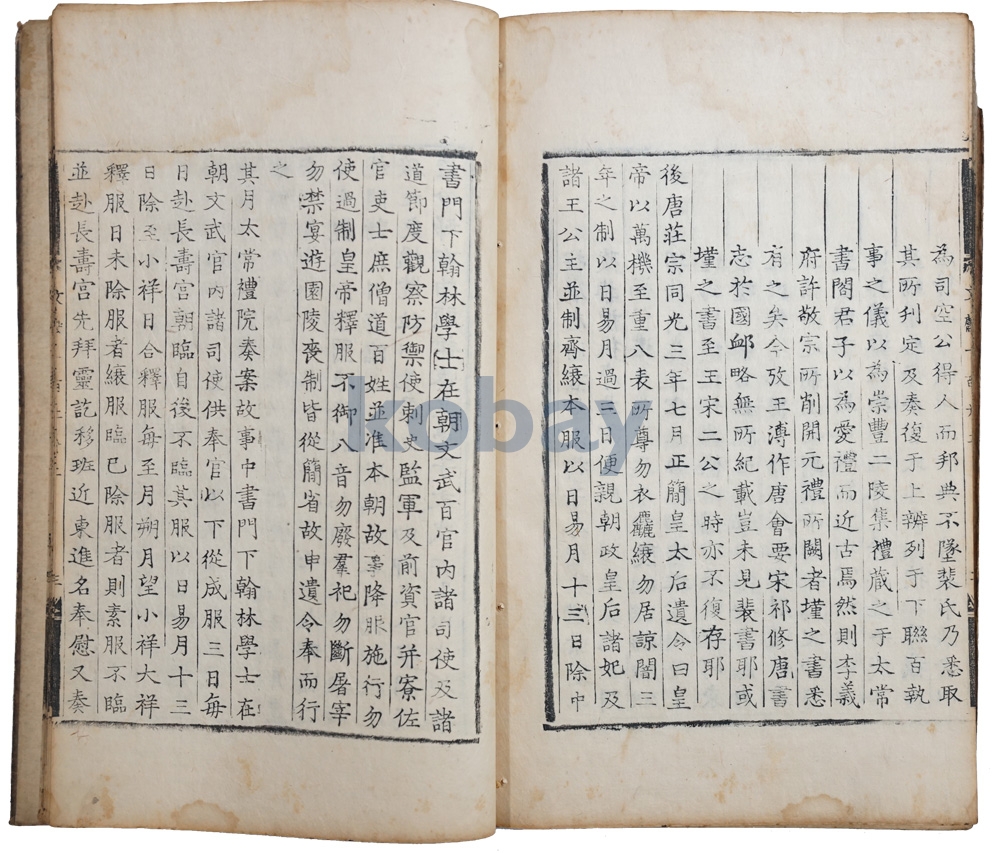 為司空公得人而邦典不墜裴氏乃悉取
其所刋定及奏復于上辨列于下聯百執
事之儀以為崇豐二陵集禮蔵之于太常
書閣君子以為愛禮而近古焉然則李義
府許敬宗所削開元禮所闕者墐之書悉
有之矣今攷王溥作唐會要宋祁修唐書
志於國卹略無所紀載豈未見裴書耶或
墐之書至王宋二公之時亦不復存耶
後唐莊宗同光三年七月正簡皇太后遺令曰皇
帝以萬機至重八表所尊勿衣麤縗勿居諒闇三
年之制以日易月過三日便親朝政皇后諸妃及
諸王公主並制齊縗本服以日易月十三日除中
書門下翰林學士在朝文武百官内諸司使及諸
道節度觀察防禦使刺史監軍及前資官并寮佐
官吏士庶僧道百姓並准本朝故事降服施行勿
使過制皇帝釋服不御八音勿廢羣祀勿斷屠宰
勿禁宴遊園陵喪制皆從簡省故申遺令奉而行
之
其月太常禮院奏案故事中書門下翰林學士在
朝文武官内諸司使供奉官以下從成服三日每
日赴長壽宫朝臨自後不臨其服以日易月十三
日除至小祥日合釋服每至月朔月望小祥大祥
釋服日未除服者縗服臨已除服者則素服不臨
並赴長壽宫先拜靈訖移班近東進名奉慰又奏
kobay